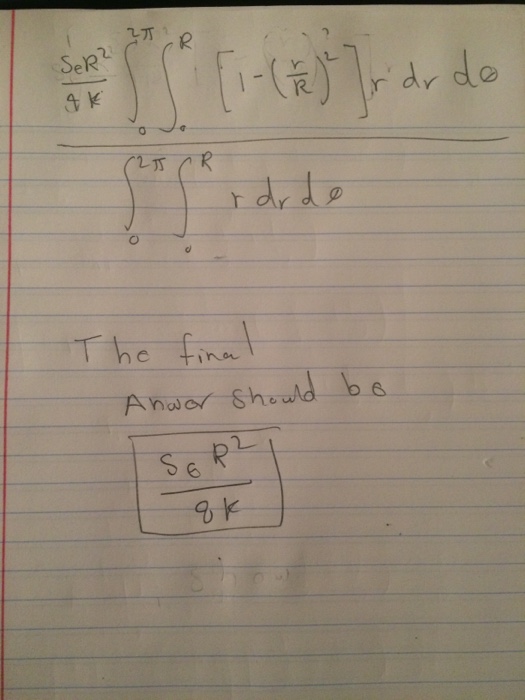 SeR² / 4k ∫₀^2π ∫₀^R [1-(r/R)²] r dr dø
∫₀^2π ∫₀^R r dr dø
The final
Anwer should be
Se R²
8k